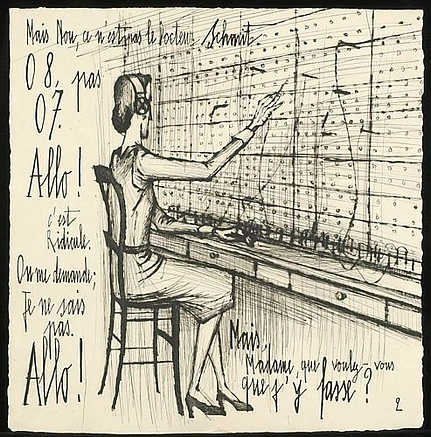 Mais Non, ce n'est pas le docteur Schmit.
08, pas
07.
Allo!
c'est
Ridicule.
On me demande;
Je ne sais
pas.
Allo!
Mais,
Madame, que voulez-vous
que j'y fasse?
2